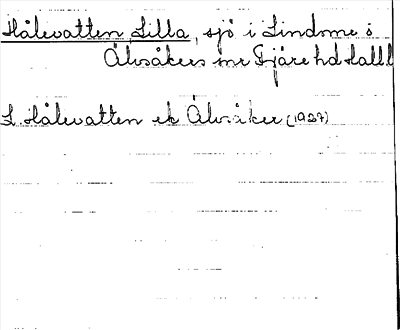 Hålevatten, Lilla, sjö i Lindome o
Älvsåkers snr Fjäre hd Hall
L. Hålevatten ek Älvsåker (1927)